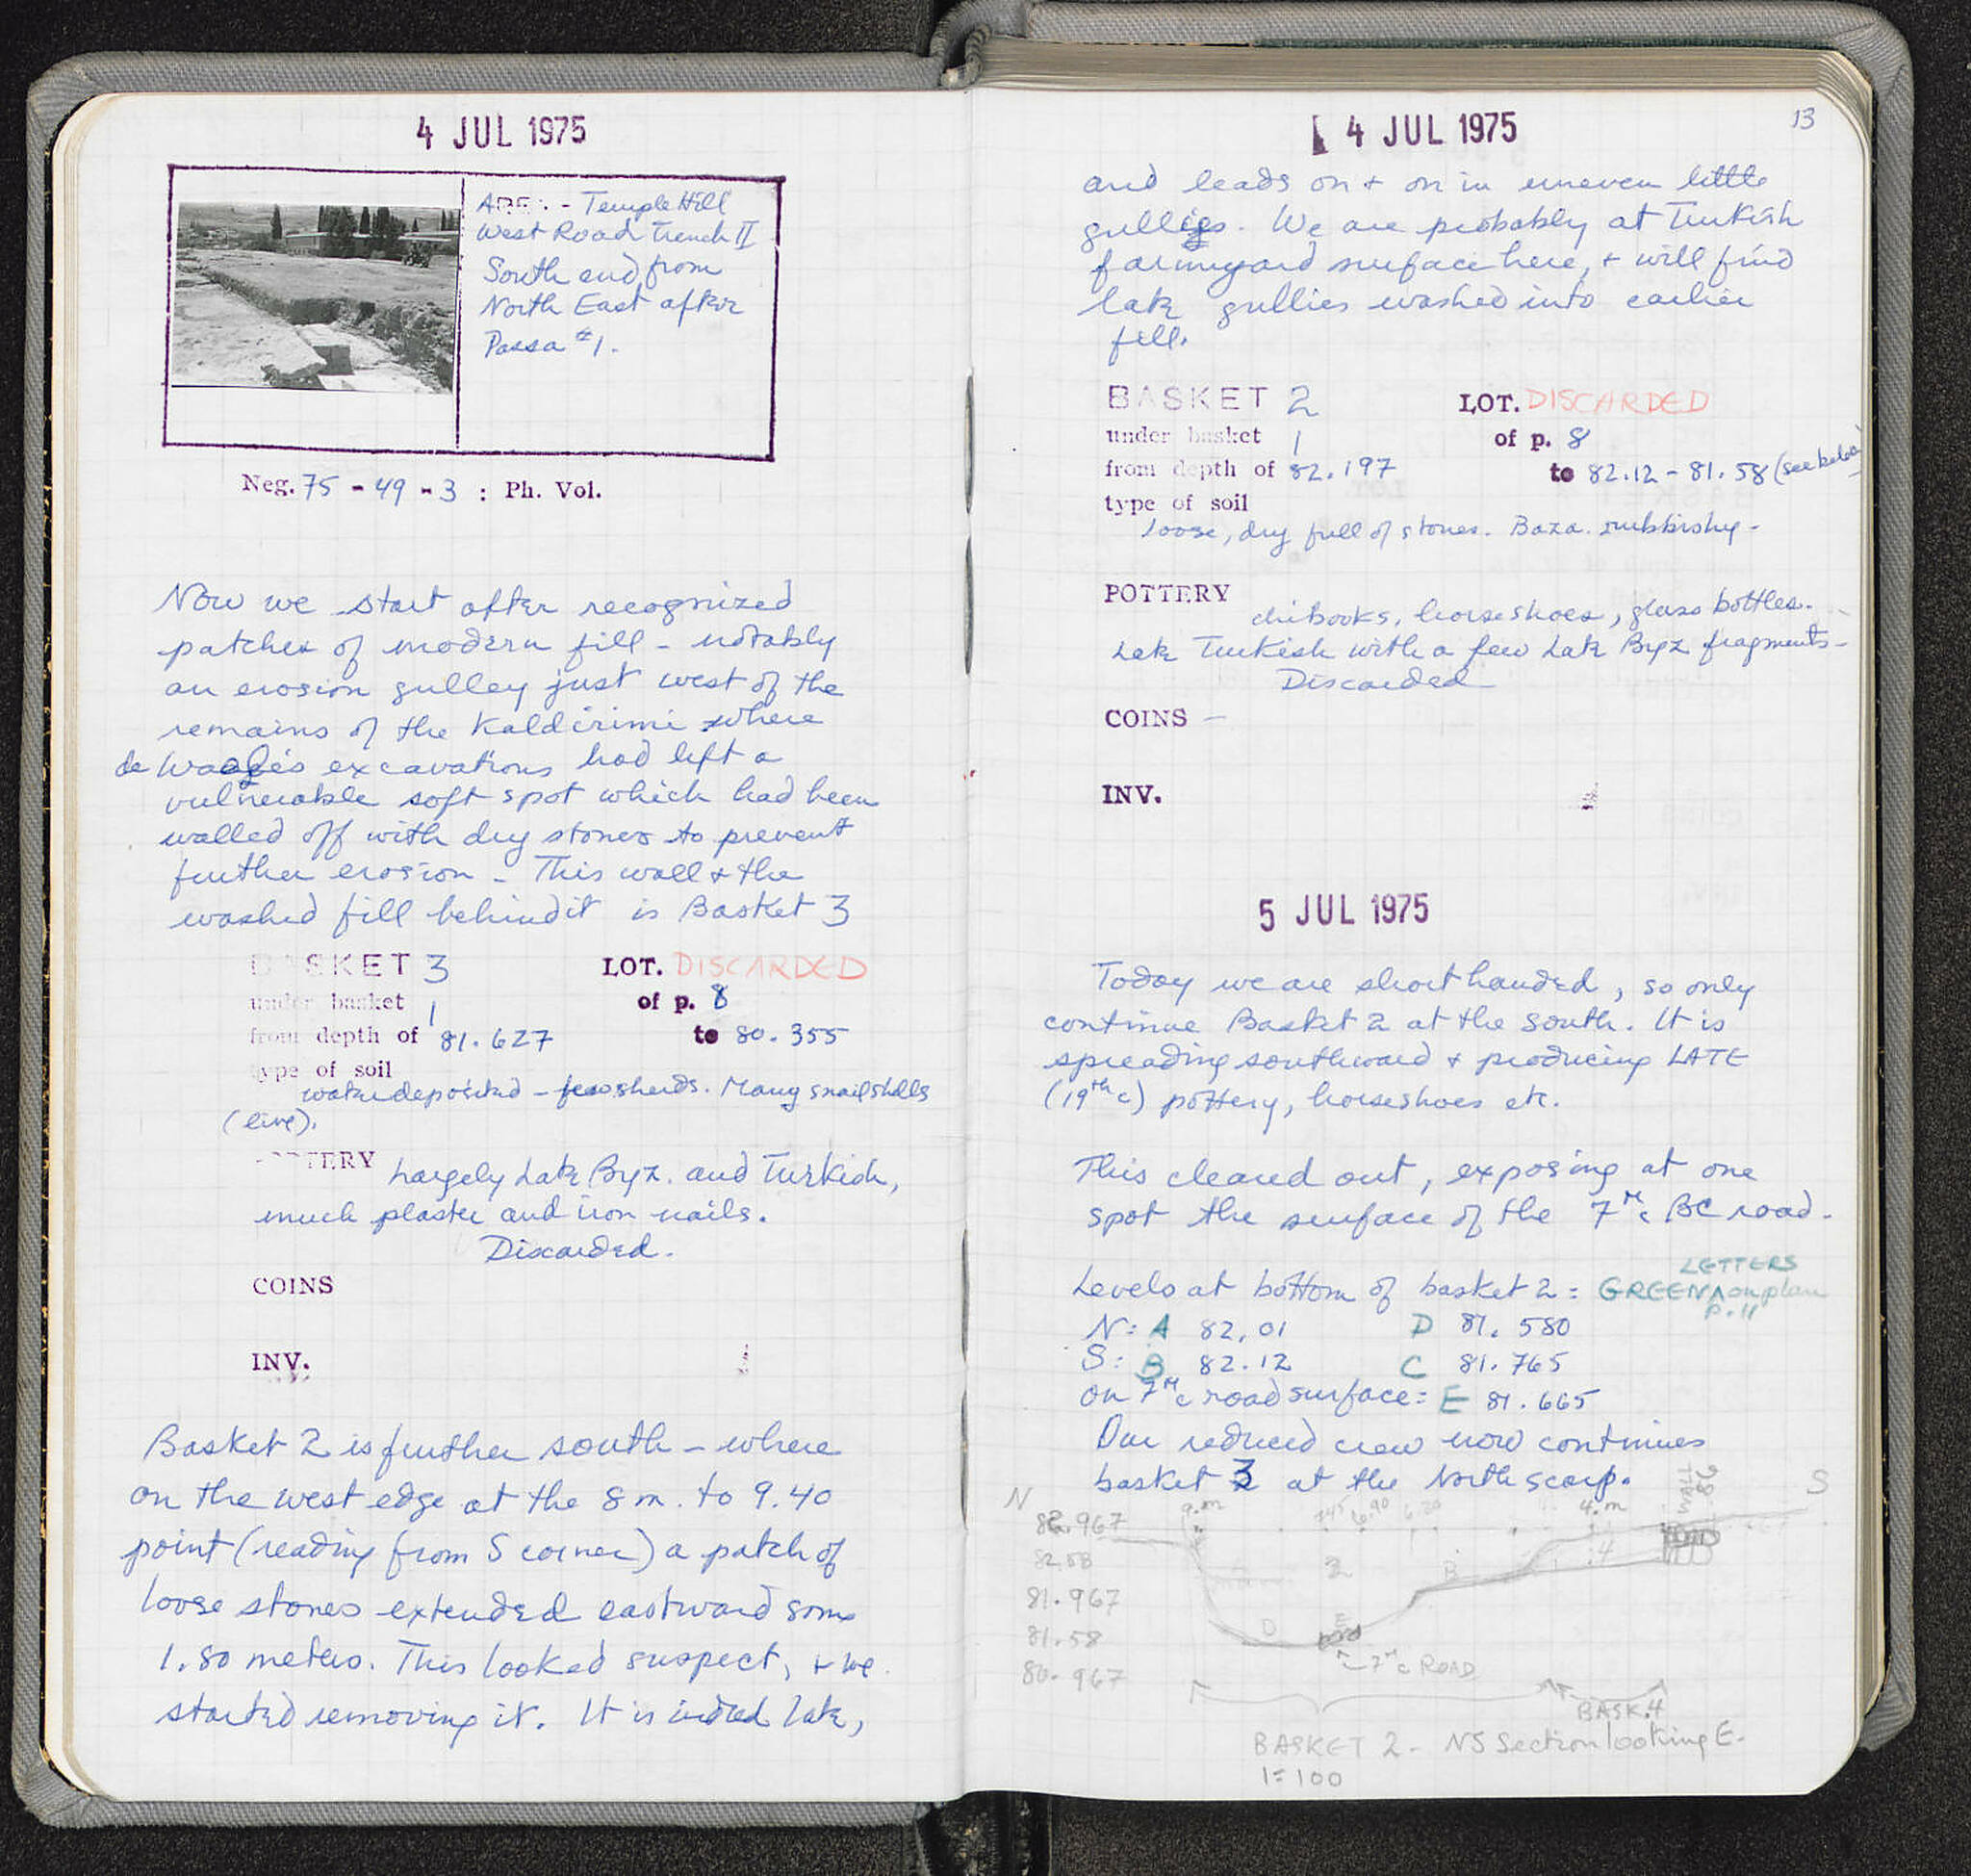 4 JUL 1975
AREA - Temple Hill
West Road Trench II
South end from
North East after
Passa #1.
Neg. 75 - 49 - 3 : Ph. Vol.
Now we start after recognized
patches of modern fill - notably
an erosion gulley just west of the
remains of the Kaldirimi where
de Waele's excavations had left a
vulnerable soft spot which had been
walled off with dry stones to prevent
further erosion - This wall & the
washed fill behind it is Basket 3
BASKET 3 LOT. DISCARDED
under basket 1 of p. 8
from depth of 81.627 to 80.355
type of soil
water deposited - few sherds. Many snail shells
(live).
POTTERY Largely Late Byz. and Turkish,
much plaster and iron nails.
Discarded.
COINS
INV.
Basket 2 is further south - where
on the west edge at the 8 m. to 9.40
point (reading from S corner) a patch of
loose stones extended eastward some
1.80 meters. This looked suspect, & we
started removing it. It is indeed late,
4 JUL 1975
13
and leads on & on in uneven little
gullies. We are probably at Turkish
farmyard surface here, & will find
late gullies washed into earlier
fill.
BASKET 2 LOT. DISCARDED
under basket 1 of p. 8
from depth of 82.197 to 82.12 - 81.58 (see below)
type of soil
loose, dry full of stones. Baza. rubbishy -
POTTERY
chibooks, horseshoes, glass bottles.
Late Turkish with a few Late Byz fragments -
Discarded
COINS -
INV.
5 JUL 1975
Today we are short handed, so only
continue Basket 2 at the south. It is
spreading southward & producing LATE
(19th c) pottery, horseshoes etc.
This cleared out, exposing at one
spot the surface of the 7th c BC road.
LETTERS
Levels at bottom of basket 2 : GREEN ^ on plan
p. 11
N: A 82.01 D 81.580
S: B 82.12 C 81.765
on 7th c road surface: E 81.665
Our reduced crew now continues
basket 3 at the North scarp.
N 9.m 6.90 4.m WALL 86 S
82.967
2 4
B
81.967
D E
81.58
80.967
7th c ROAD
BASK.4
BASKET 2 - NS Section looking E.
1=100